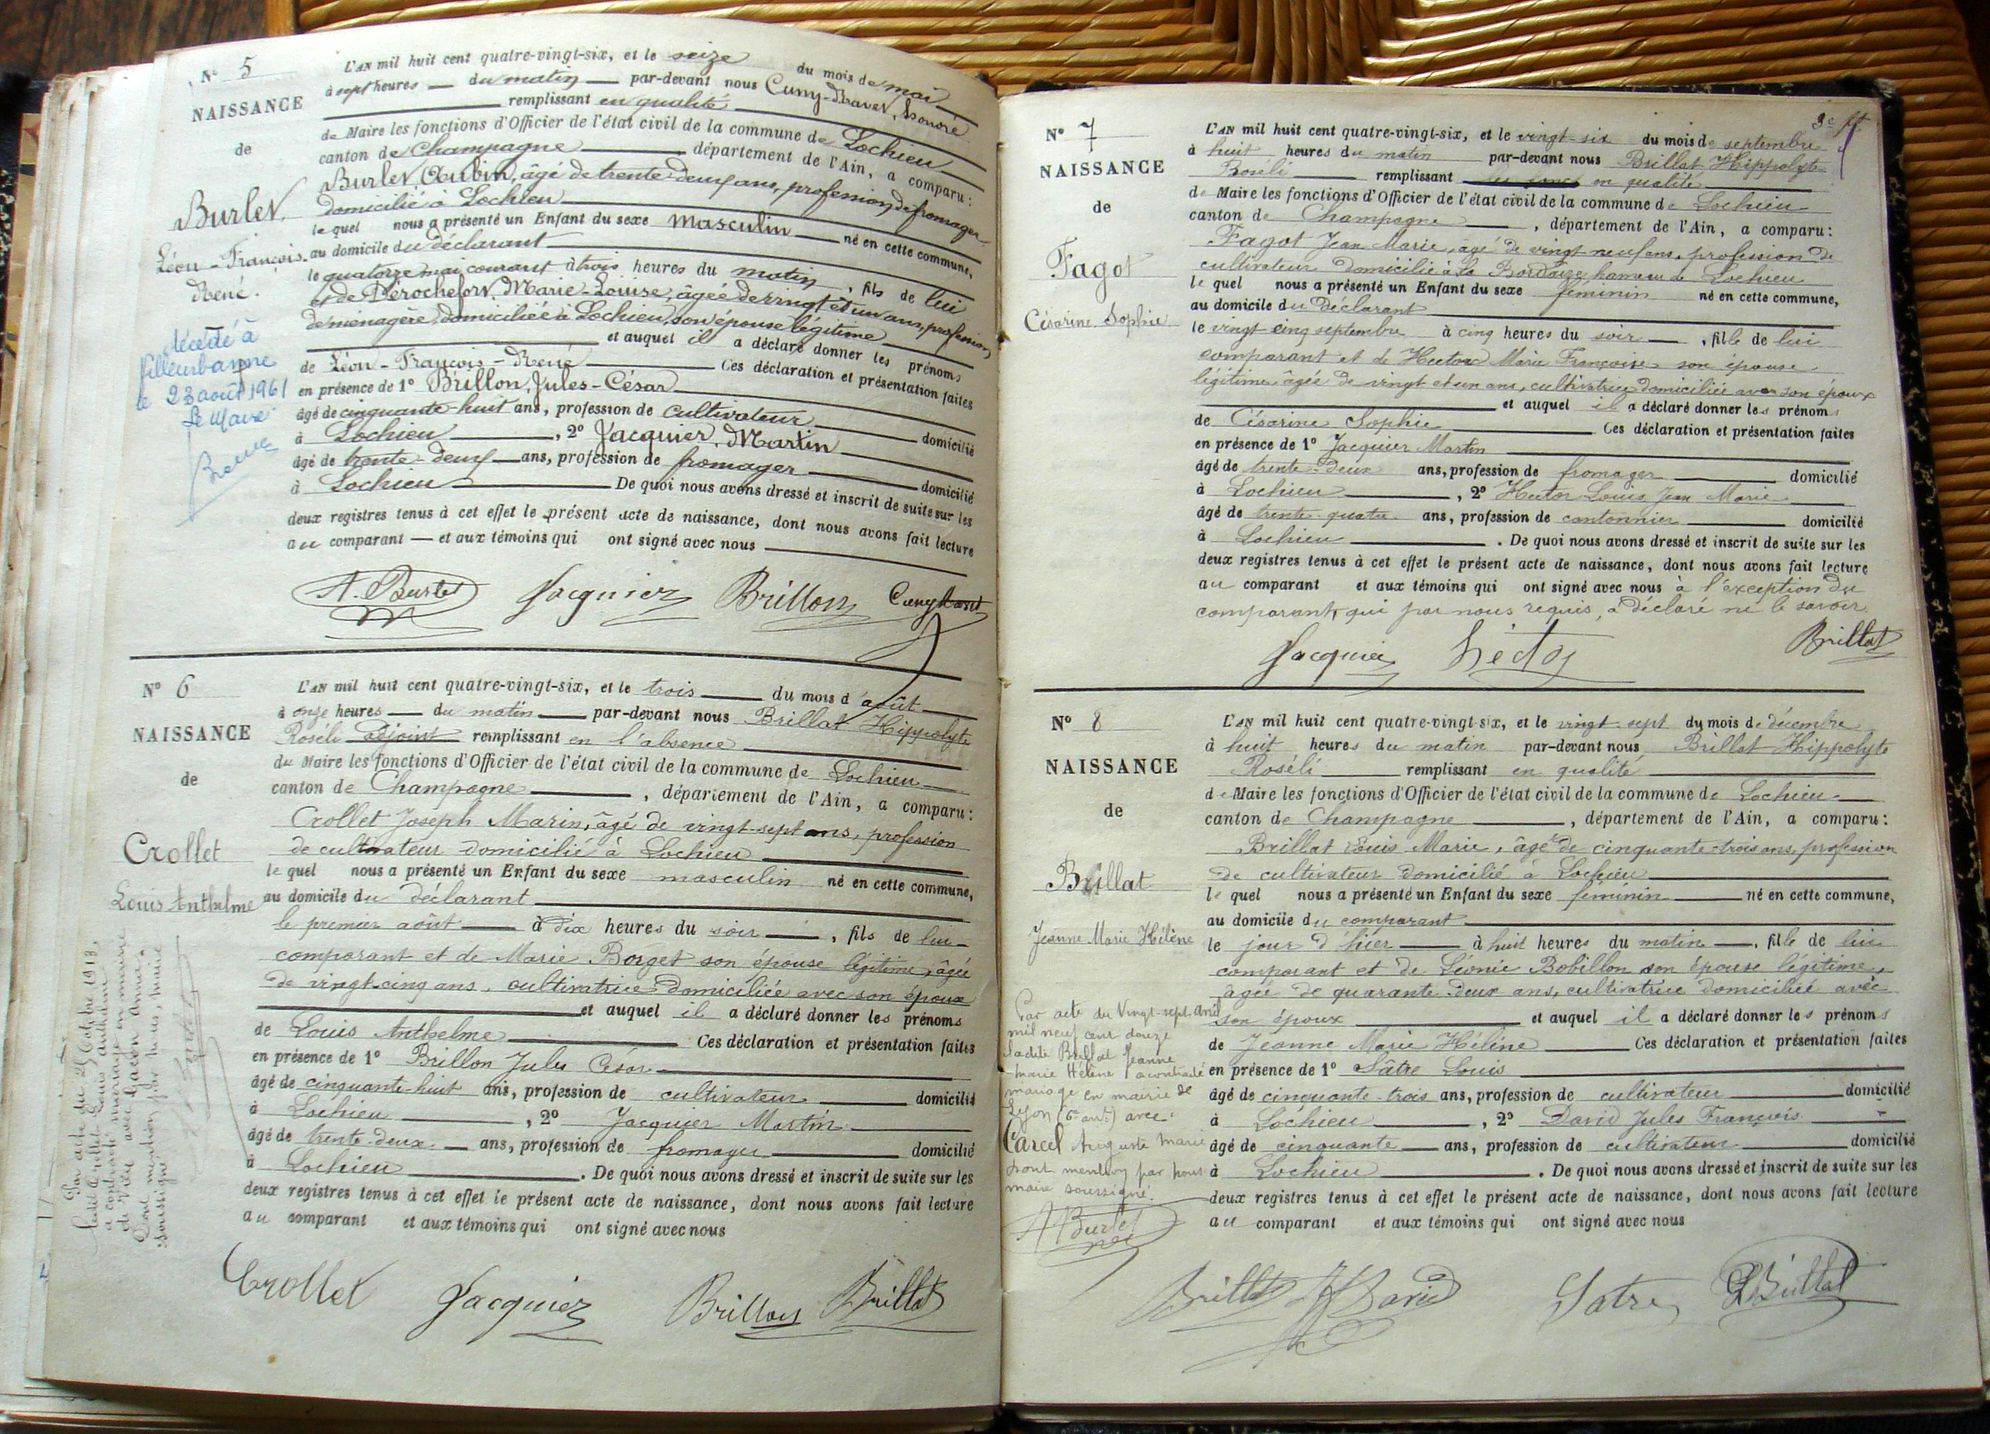 N° 5
NAISSANCE
de
Burlet
Léon-François-
René.
décédé à
Villeurbanne
le 23 août 1961
Le Maire
L'AN mil huit cent quatre-vingt-six, et le seize du mois de mai
à sept heures du matin par-devant nous Cuny-Ravet, Honoré
remplissant en qualité
de Maire les fonctions d'Officier de l'état civil de la commune de Lochieu
canton de Champagne département de l'Ain, a comparu:
Burlet Aubin, âgé de trente-deux ans, profession de fromager
domicilié à Lochieu
le quel nous a présenté un Enfant du sexe masculin né en cette commune,
au domicile du déclarant
le quatorze mai courant à trois heures du matin, fils de lui
et de Pérochefort, Marie-Louise, âgée de vingt et un ans, profession
de ménagère, domiciliée à Lochieu, son épouse légitime
et auquel il a déclaré donner les prénoms
de Léon-François-René Ces déclaration et présentation faites
en présence de 1° Brillon, Jules-César
âgé de cinquante-huit ans, profession de cultivateur domicilié
à Lochieu, 2° Jacquier, Martin
âgé de trente-deux ans, profession de fromager domicilié
à Lochieu De quoi nous avons dressé et inscrit de suite sur les
deux registres tenus à cet effet le présent acte de naissance, dont nous avons fait lecture
au comparant et aux témoins qui ont signé avec nous
A. Burlet Jacquier Brillon Cuny
N° 6
NAISSANCE
de
Crollet
Louis Anthelme
L'AN mil huit cent quatre-vingt-six, et le trois du mois d'août
à onze heures du matin par-devant nous Brillat Hippolyte
Roséli adjoint remplissant en l'absence
du Maire les fonctions d'Officier de l'état civil de la commune de Lochieu
canton de Champagne, département de l'Ain, a comparu:
Crollet Joseph Marin, âgé de vingt-sept ans, profession
de cultivateur domicilié à Lochieu
le quel nous a présenté un Enfant du sexe masculin né en cette commune,
au domicile du déclarant
le premier août à dix heures du soir, fils de lui
comparant et de Marie Borget son épouse légitime, âgée
de vingt-cinq ans, cultivatrice domiciliée avec son époux
et auquel il a déclaré donner les prénoms
de Louis Anthelme Ces déclaration et présentation faites
en présence de 1° Brillon Jules César
âgé de cinquante-huit ans, profession de cultivateur domicilié
à Lochieu, 2° Jacquier Martin
âgé de trente-deux ans, profession de fromager domicilié
à Lochieu. De quoi nous avons dressé et inscrit de suite sur les
deux registres tenus à cet effet le présent acte de naissance, dont nous avons fait lecture
au comparant et aux témoins qui ont signé avec nous
Crollet Jacquier Brillon Brillat
Par acte du 26 Octobre 1918,
ledit Crollet Louis Anthelme
a contracté mariage en mairie
de Vieu avec
Dont mention par nous, maire
soussigné
N° 7
NAISSANCE
de
Fagot
Césarine Sophie
L'AN mil huit cent quatre-vingt-six, et le vingt-six du mois de septembre
à huit heures du matin par-devant nous Brillat Hippolyte
Roséli remplissant en qualité
de Maire les fonctions d'Officier de l'état civil de la commune de Lochieu
canton de Champagne, département de l'Ain, a comparu:
Fagot Jean Marie, âgé de vingt neuf ans, profession de
cultivateur domicilié à la hameau de Lochieu
le quel nous a présenté un Enfant du sexe féminin né en cette commune,
au domicile du déclarant
le vingt cinq septembre à cinq heures du soir, fille de lui
comparant et de Hector Marie Françoise son épouse
légitime âgée de vingt et un ans, cultivatrice domiciliée avec son époux
et auquel il a déclaré donner les prénoms
de Césarine Sophie Ces déclaration et présentation faites
en présence de 1° Jacquier Martin
âgé de trente-deux ans, profession de fromager domicilié
à Lochieu, 2° Hector Louis Jean Marie
âgé de trente-quatre ans, profession de cantonnier domicilié
à Lochieu. De quoi nous avons dressé et inscrit de suite sur les
deux registres tenus à cet effet le présent acte de naissance, dont nous avons fait lecture
au comparant et aux témoins qui ont signé avec nous à l'exception du
comparant, qui par nous requis, a déclaré ne le savoir.
Jacquier Hector Brillat
N° 8
NAISSANCE
de
Brillat
Jeanne Marie Hélène
L'AN mil huit cent quatre-vingt-six, et le vingt-sept du mois de décembre
à huit heures du matin par-devant nous Brillat Hippolyte
Roséli remplissant en qualité
de Maire les fonctions d'Officier de l'état civil de la commune de Lochieu
canton de Champagne, département de l'Ain, a comparu:
Brillat Louis Marie, âgé de cinquante-trois ans, profession
de cultivateur domicilié à Lochieu
le quel nous a présenté un Enfant du sexe féminin né en cette commune,
au domicile du comparant
le jour d'hier à huit heures du matin, fille de lui
comparant et de Léonie Bobillon son épouse légitime,
âgée de quarante-deux ans, cultivatrice domiciliée avec
son époux et auquel il a déclaré donner les prénoms
de Jeanne Marie Hélène Ces déclaration et présentation faites
en présence de 1° Sâtre Louis
âgé de cinquante-trois ans, profession de cultivateur domicilié
à Lochieu, 2° David Jules François
âgé de cinquante ans, profession de cultivateur domicilié
à Lochieu. De quoi nous avons dressé et inscrit de suite sur les
deux registres tenus à cet effet le présent acte de naissance, dont nous avons fait lecture
au comparant et aux témoins qui ont signé avec nous
Brillat David Satre Brillat
Par acte du Vingt-sept avril
mil neuf cent douze
ladite Brillat Jeanne
Marie Hélène a contracté
mariage en mairie de
Lyon (6e arrt) avec:
Carcel Auguste Marie
dont mention par nous
maire soussigné.
A Burlet